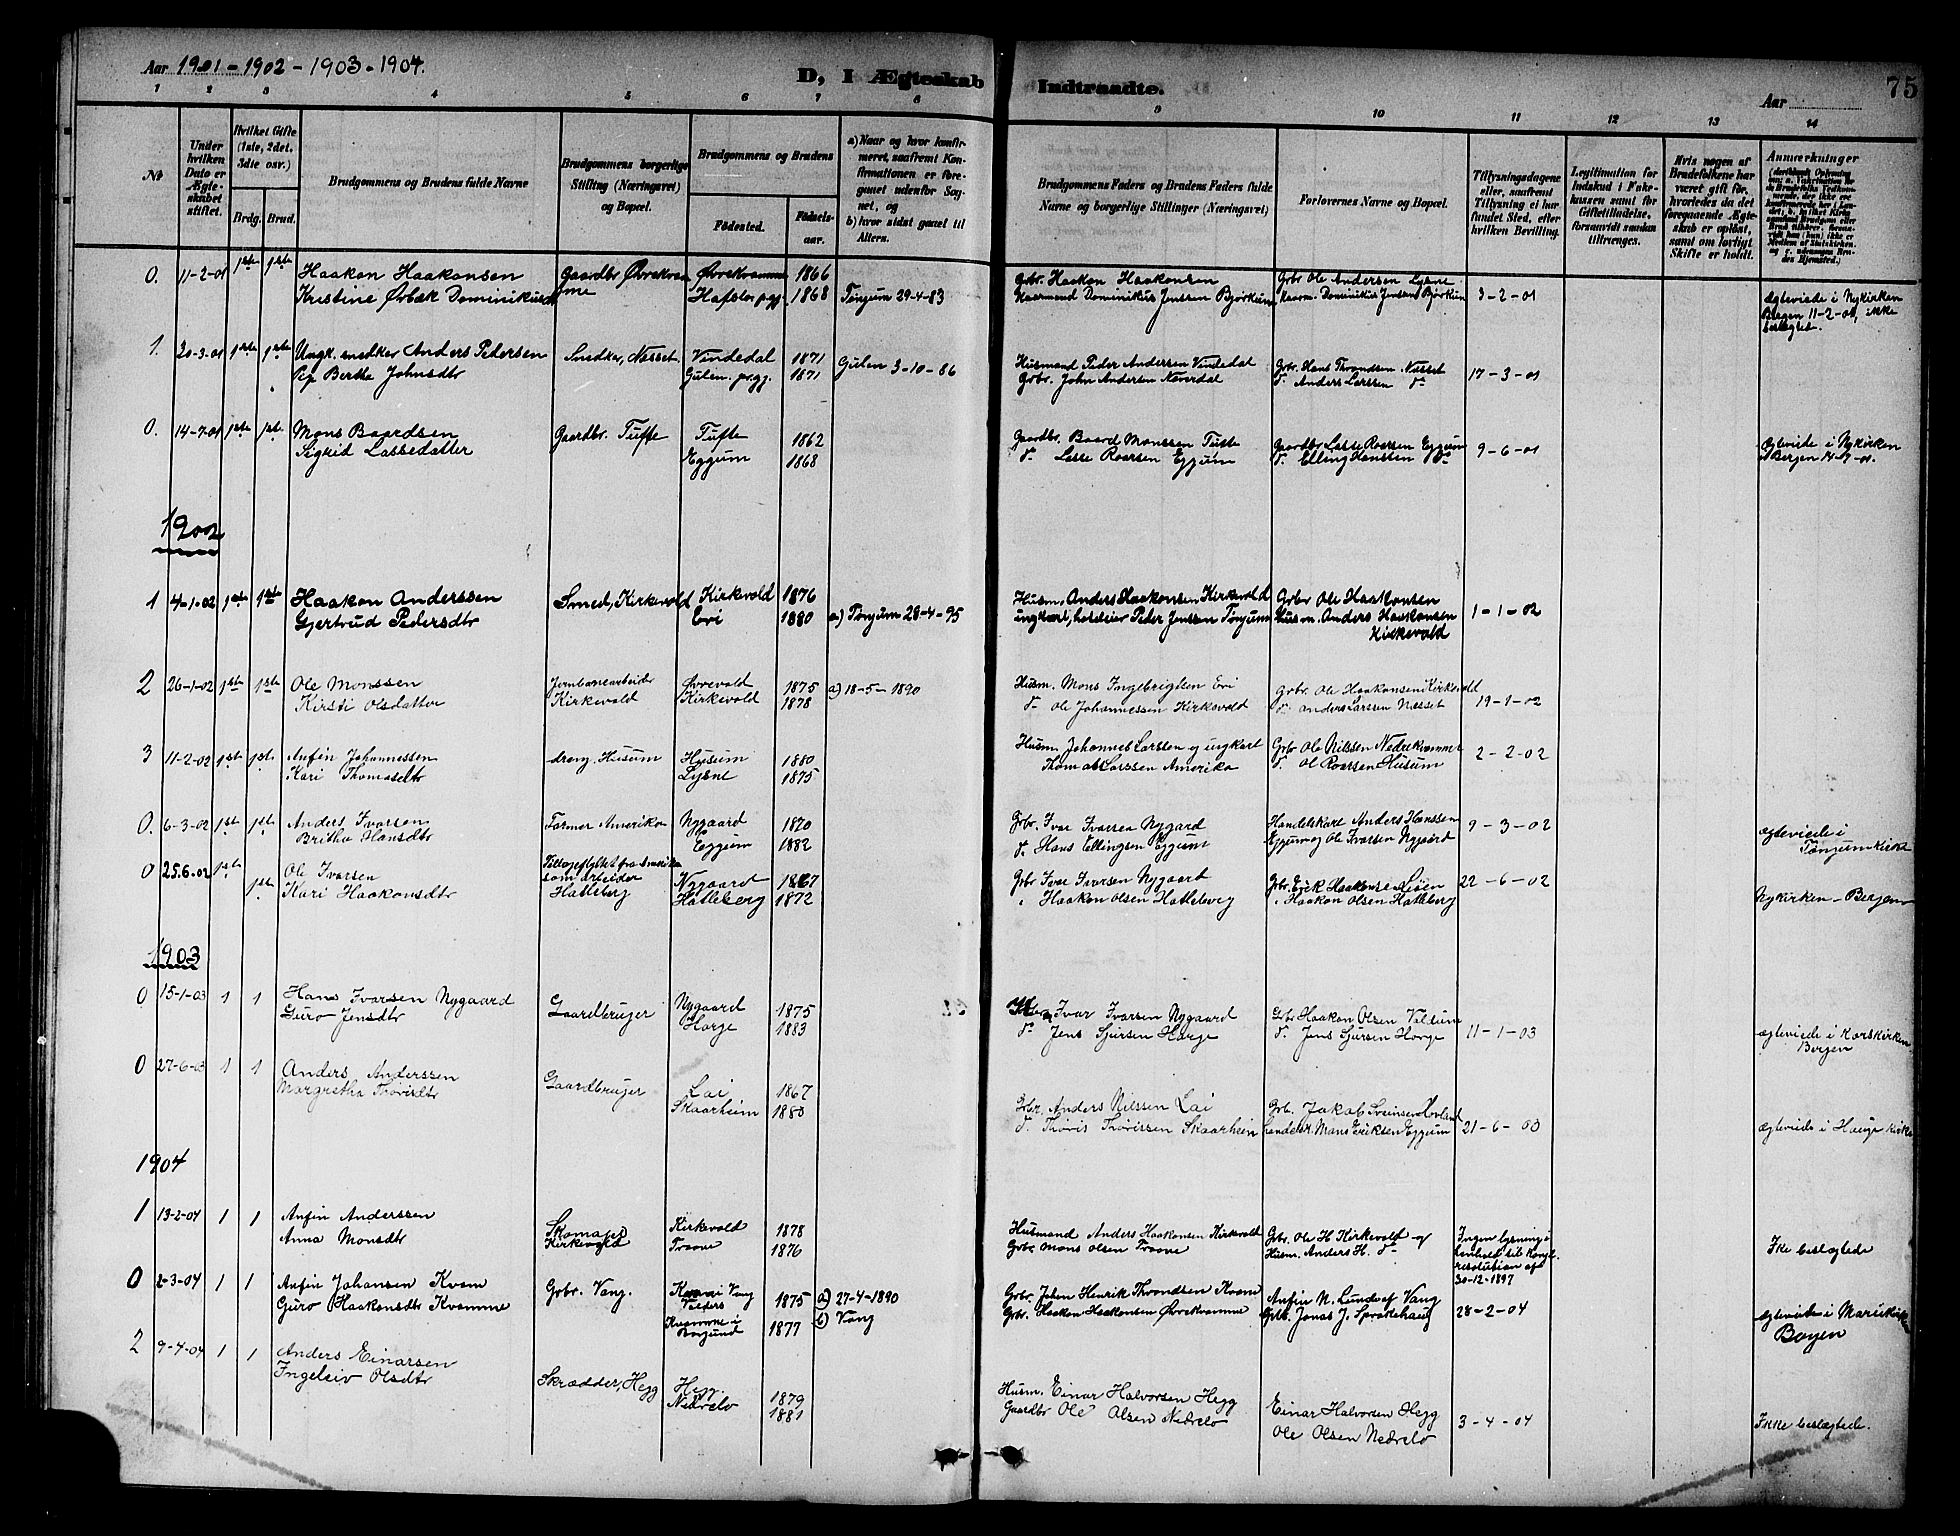 Aar 1901 - 1902 - 1903 - 1904.
D, I Ægteskab Indtraadte.
Aar
75
1 2 3 4 5 6 7 8 9 10 11 12 13 14
No
Under hvilken Dato er Ægteskabet stiftet.
Hvilket Gifte (1ste, 2det, 3die osv.)
Brdg. Brud.
Brudgommens og Brudens fulde Navne
Brudgommens borgerlige Stilling (Næringsvei) og Bopæl.
Brudgommens og Brudens
Fødested.
Fødselsaar.
a) Naar og hvor konfirmeret, saafremt Konfirmationen er foregaaet udenfor Sognet, og
b) hvor sidst gaaet til Alters.
Brudgommens Faders og Brudens Faders fulde Navne og borgerlige Stillinger (Næringsvei)
Forlovernes Navne og Bopæl.
Tillysningsdagene eller, saafremt Tillysning ei har fundet Sted, efter hvilken Bevilling.
Legitimation for Indskud i Enkekassen samt for Giftetilladelse, forsaavidt saadan tiltrænges.
Hvis nogen af Brudefolkene har været gift før, hvorledes da det foregaaende Ægteskab er opløst, samt om lovligt Skifte er holdt.
Anmerkninger
0. 11-2-01 1ste 1ste Haakon Haakonsen Gaardbr Øvrekvamme Øvrekvamme 1866 Grbr. Haakon Haakonsen Grbr Ole Andersen Lysne 3-2-01 Ægteviede i Nykirken
Kristine Ørbæk Dominikusd Hafslo pgj. 1868 Tønjum 29-4-83 Kaarmand Dominikus Jenssen Bjørkum Kaarm. Dominikus Jenssen Bjørkum Bergen 11-2-01, ikke
beslegtede.
1. 20-3-01 1ste 1ste Ungk. snedker Anders Pedersen Snedker, Nesset Vindedal 1871 Gulen 3-10-86 Husmand Peder Andersen Vindedal Grbr. Hans Throndsen Nesset 17-3-01
Pig. Bertha Johnsdtr Gulen prgj. 1871 Grbr. John Andersen Neverdal d. Anders Larssen d
0. 14-7-01 1ste 1ste Mons Baardsen Gaardbr. Tufte Tufte 1862 Gaardbr. Baard Monssen Tufte Gaardbr Lasse Roarsen Eggum 9-6-01 Ægteviede i Nykirken
Sigrid Lassedatter Eggum 1868 d. Lasse Roarsen Eggum d. Elling Hanssen d. Bergen 14-7-01.
1902
1 4-1-02 1ste 1ste Haakon Anderssen Smed, Kirkevold Kirkvold 1876 Husm. Anders Haakonsen Kirkevold Grbr Ole Haakonsen 1-1-02
Gjertrud Pedersdtr Eri 1880 a) Tønjum 28-4-95 ungkarl, hoteleier Peder Jenssen Tønjum Husm. Anders Haakonsen
Kirkevold
2 26-1-02 1ste 1ste Ole Monssen Jernbanearbeider Øvrevold 1875 a) 18-5-1890 Husm. Mons Ingebrigtsen Eri Grbr. Ole Haakonsen Kirkevold 19-1-02
Kirsti Olsdatter Kirkevold Kirkevold 1878 d. Ole Johannessen Kirkevold d. Anders Larsen Nesset
3 11-2-02 1ste 1ste Anfin Johannessen dreng. Husum Husum 1880 Husm. Johannes Larssen og ungkarl Grbr Ole Nilssen Nedrekvamme 2-2-02
Kari Thomasdtr Lysne 1875 Thomas Larssen Amerika d. Ole Roarsen Husum
0. 6-3-02 1ste 1ste Anders Ivarsen Farmer Amerika Nygaard 1870 Grbr. Ivar Ivarsen Nygard Handelskarl Anders Hanssen 9-3-02 ægteviede i
Britha Hansdtr Eggum 1882 d. Hans Ellingsen Eggum Eggum og Ole Ivarsen Nygard Tønjum kirke
0 25.6-02 1ste 1ste Ole Ivarsen Tilbageflyttet fra Amerika som arbeider Nygaard 1867 Grbr Ivar Ivarsen Nygaard Grbr. Erik Haakonsen Liøen 22-6-02 Nykirken - Bergen
Kari Haakonsdtr Hatleberg Hatleberg 1872 Haakon Olsen Hatleberg Haakon Olsen Hatleberg
1903
0 15-1-03 1 1 Hans Ivarsen Nygaard Gaardbruger Nygaard 1875 Ivar Ivarsen Nygaard Grbr Haakon Olsen Voldum 11-1-03 ægteviede i Korskirken
Guro Jensdtr Horge 1883 d. Jens Sjursen Horge d. Jens Sjursen Horge Bergen
0 27-6-03 1 1 Anders Anderssen Gaardbruger Lai 1867 Grbr. Anders Nilssen Lai Grb. Jakob Sveinsen Hovland 21-6-03 ægteviede i Hauge kirke
Margretha Thørisdtr Skaarheim 1880 d. Thøris Thørissen Skaarheim Handelskr. Mons Eriksen Eggum
1904
1 13-2-04 1 1 Anfin Anderssen Skomager 1878 Kirkevold Husmand Anders Haakonsen Kirkevold Grbr. Ole H. Kirkevold og Ingen lysning i Ikke beslegtede
Anna Monsdtr Kirkevold Traave 1876 Grbr. Mons Olsen Traave Husm. Anders H. d. henhold til Kongl.
resolution af
30-12-1897
0 2-3-04 1 1 Anfin Johansen Kvam Grbr. Vang. Kvam i Vang 1875 a) 27-4-1890 Grbr. John Henrik Throndsen Kvam Anfin N. Lunde af Vang 28-2-04 ægteviede i Mariekirken
Guro Haakonsdtr Kvamme Kvamme i Borgund 1877 b) Vang Grbr. Haakon Haakonsen Øvrekvamme Grb. Jonas J. Sprakehaug Bergen
2 9-4-04 1 1 Anders Einarsen Skrædder, Hegg Hegg. 1879 Husm. Einar Halvorsen Hegg Einar Halvorsen Hegg 3-4-04 Ikke beslegtede.
Ingeleiv Olsdtr Nedrelo 1881 Gaardbr Ole Olsen Nedrelo Ole Olsen Nedrelo